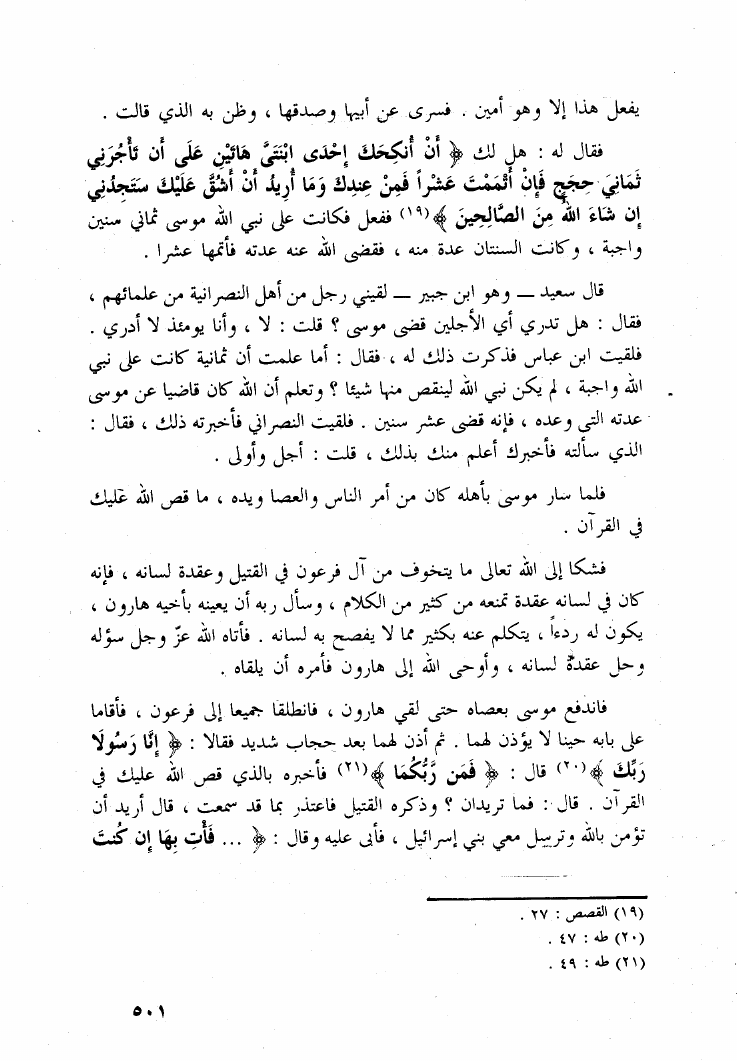 يفعل هذا إلا وهو أمين . فسرى عن أبيها وصدقها ، وظن به الذي قالت .
فقال له : هل لك ﴿ أَنْ أُنكِحَكَ إِحْدَى ابْنَتَيَّ هَاتَيْنِ عَلَى أَن تَأْجُرَنِي
ثَمَانِيَ حِجَجٍ فَإِنْ أَتْمَمْتَ عَشْراً فَمِنْ عِندِكَ وَمَا أُرِيدُ أَنْ أَشُقَّ عَلَيْكَ سَتَجِدُنِي
إِن شَاءَ اللهُ مِنَ الصَّالِحِينَ ﴾(١٩) ففعل فكانت على نبي الله موسى ثماني سنين
واجبة ، وكانت السنتان عدة منه ، فقضى الله عنه عدته فأتمها عشرا .
قال سعيد — وهو ابن جبير — لقيني رجل من أهل النصرانية من علمائهم ،
فقال : هل تدري أي الأجلين قضى موسى ؟ قلت : لا ، وأنا يومئذ لا أدري .
فلقيت ابن عباس فذكرت ذلك له ، فقال : أما علمت أن ثمانية كانت على نبي
الله واجبة ، لم يكن نبي الله لينقص منها شيئا ؟ وتعلم أن الله كان قاضيا عن موسى
عدته التي وعده ، فإنه قضى عشر سنين . فلقيت النصراني فأخبرته ذلك ، فقال :
الذي سألته فأخبرك أعلم منك بذلك ، قلت : أجل وأولى .
فلما سار موسى بأهله كان من أمر الناس والعصا ويده ، ما قص الله عليك
في القرآن .
فشكا إلى الله تعالى ما يتخوف من آل فرعون في القتيل وعقدة لسانه ، فإنه
كان في لسانه عقدة تمنعه من كثير من الكلام ، وسأل ربه أن يعينه بأخيه هارون ،
يكون له ردءاً ، يتكلم عنه بكثير مما لا يفصح به لسانه . فأتاه الله عزّ وجل سؤله
وحل عقدة لسانه ، وأوحى الله إلى هارون فأمره أن يلقاه .
فاندفع موسى بعصاه حتى لقي هارون ، فانطلقا جميعا إلى فرعون ، فأقاما
على بابه حينا لا يؤذن لهما . ثم أذن لهما بعد حجاب شديد فقالا : ﴿ إِنَّا رَسُولَا
رَبِّكَ ﴾(٢٠) قال : ﴿ فَمَن رَّبُّكُمَا ﴾(٢١) فأخبره بالذي قص الله عليك في
القرآن . قال : فما تريدان ؟ وذكره القتيل فاعتذر بما قد سمعت ، قال أريد أن
تؤمن بالله وترسل معي بني إسرائيل ، فأبى عليه وقال : ﴿ ... فَأْتِ بِهَا إِن كُنتَ
(١٩) القصص : ٢٧ .
(٢٠) طه : ٤٧ .
(٢١) طه : ٤٩ .
٥٠١